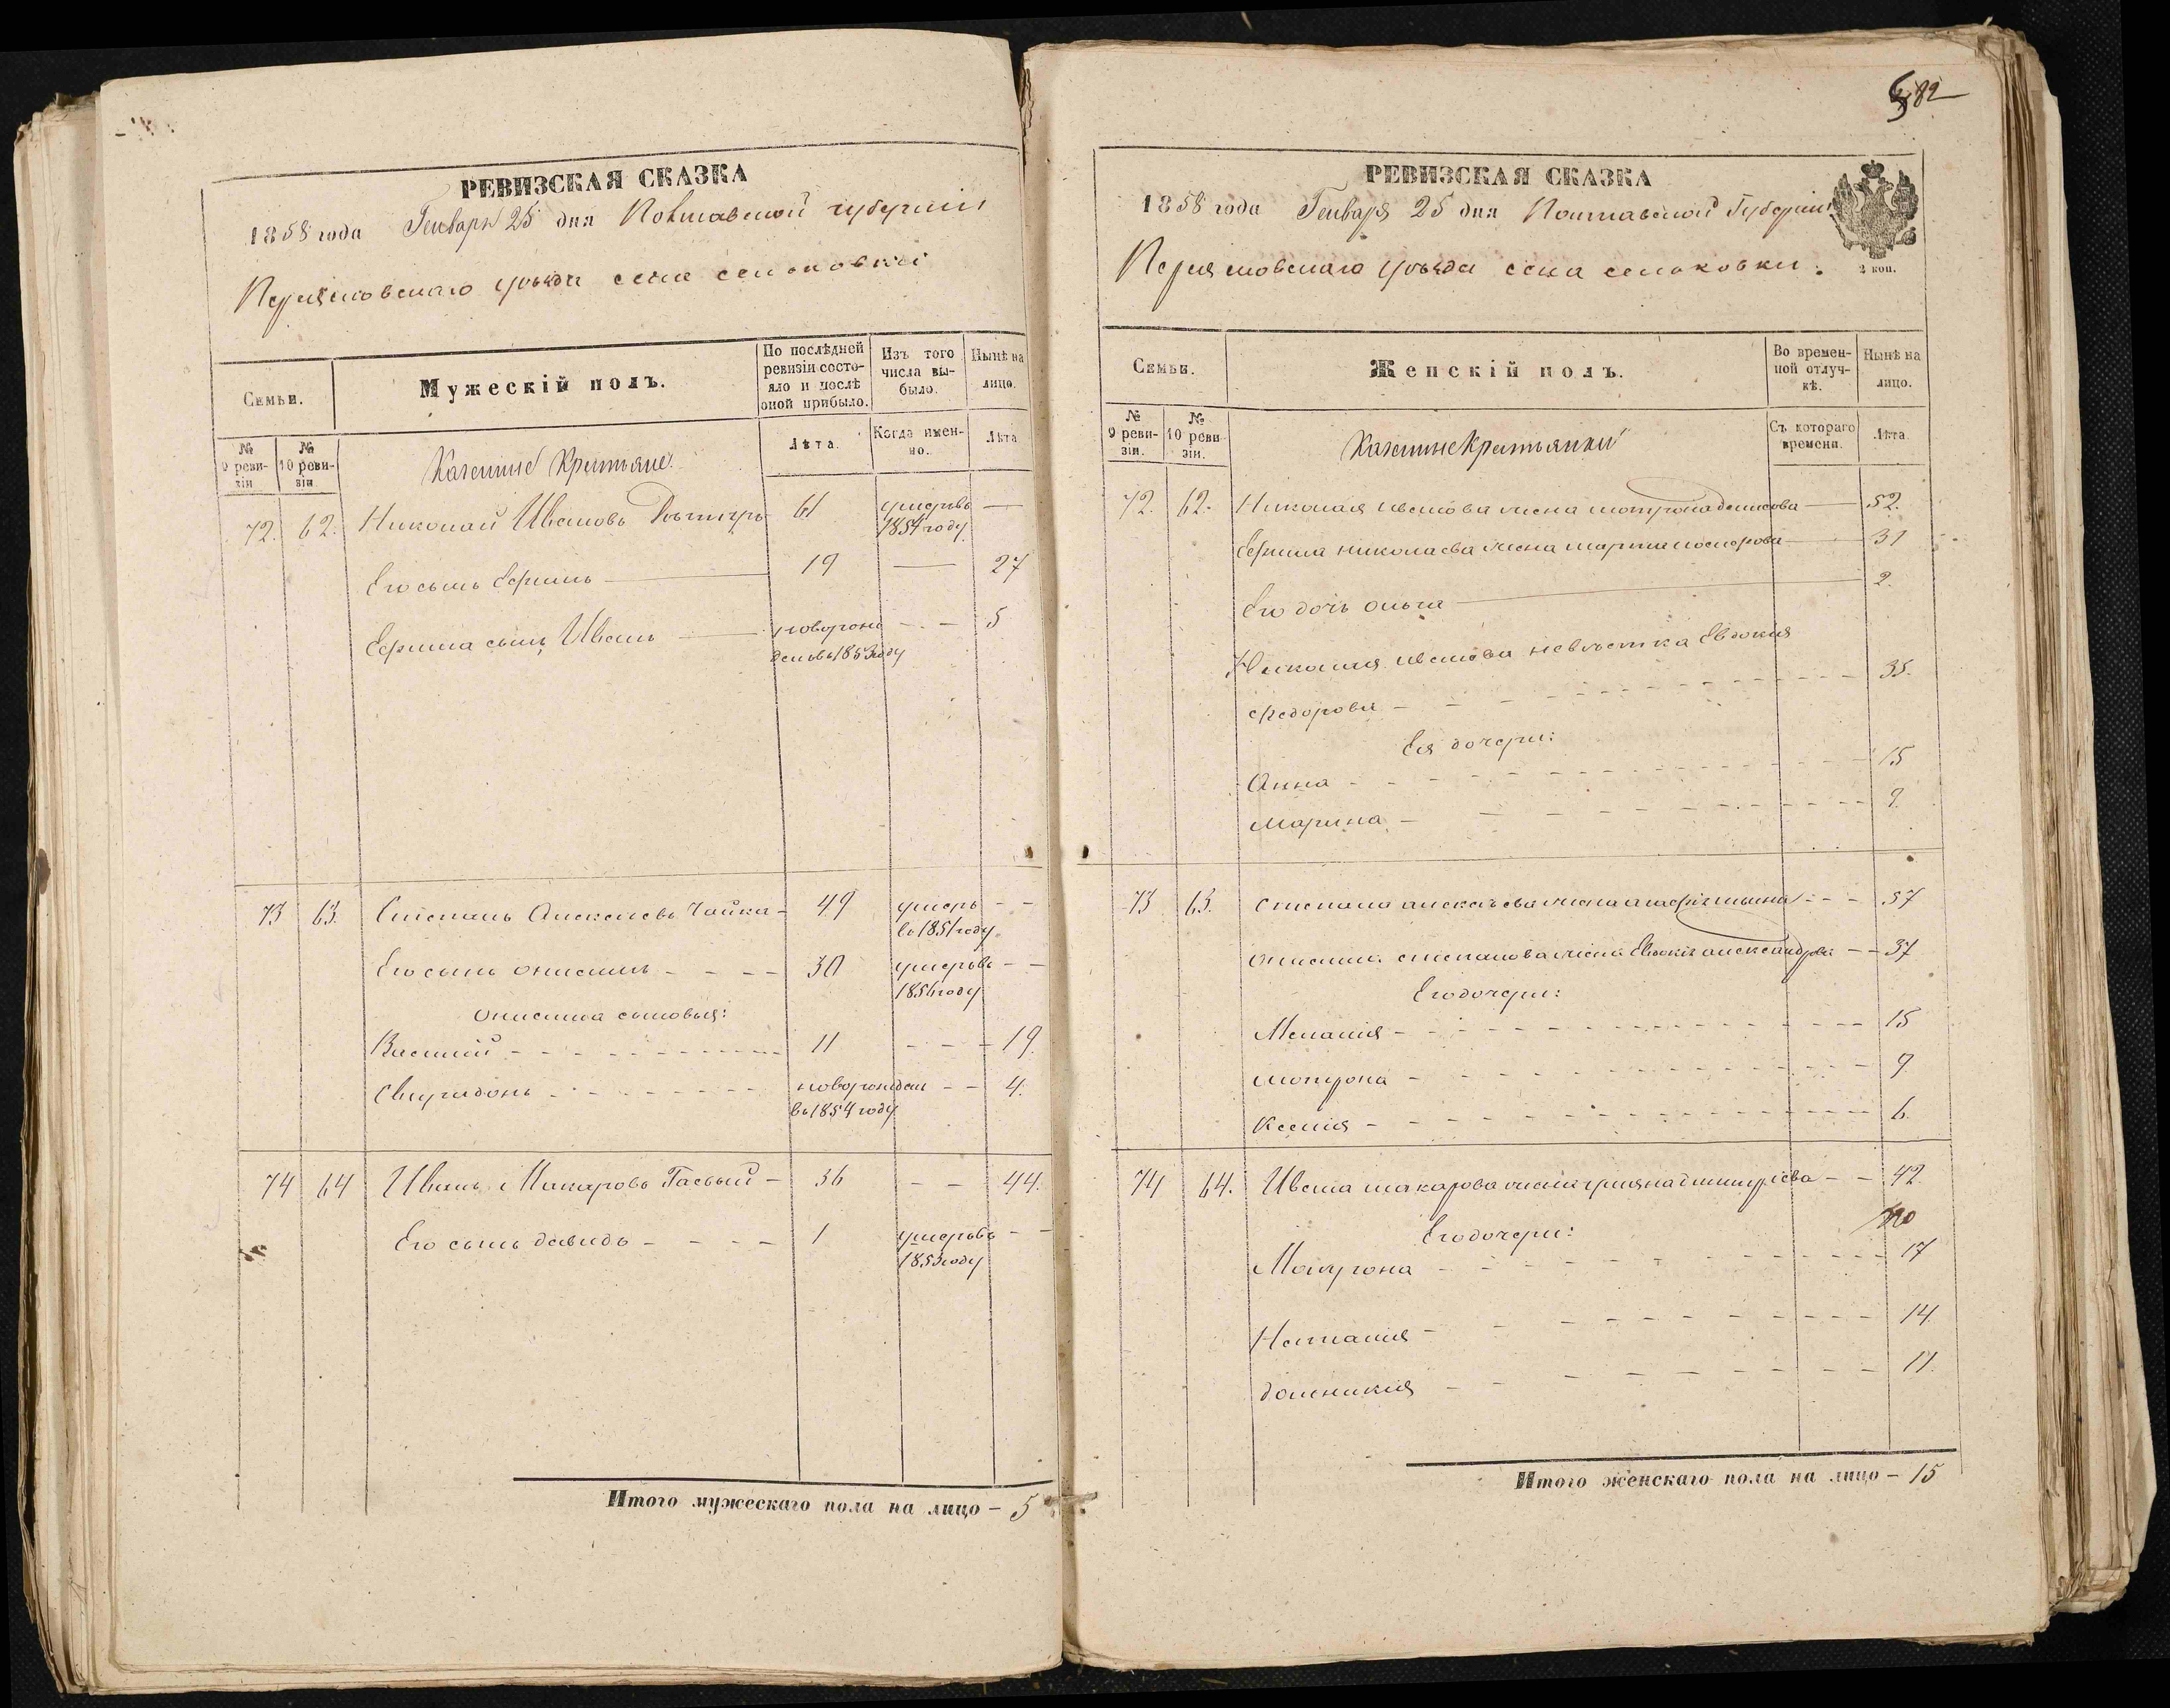 РЕВИЗСКАЯ СКАЗКА
1858 года Генваря 25 дня Полтавской губернии
Переяславскаго уѣзда села
Семьи.
Мужескій полъ.
По послѣдней ревизіи состояло и послѣ оной прибыло.
Изъ того числа выбыло.
Нынѣ на лицо.
№ 9 ревизіи
№ 10 ревизіи
Казенные Крестьяне
Лѣта.
Когда именно.
Лѣта
72. 62. Николай Ивановъ 61 умеръ въ —
1854 году
Его сынъ Ефимъ — 19 — 27
Ефима сынъ Иванъ — новорож — 5
денъ въ 1853 году
73 63. Степанъ Алексеевъ Чайка - 49 умеръ - -
въ 1851 году
Его сынъ Онисимъ - - - - 30 умеръ въ - -
1856 году
Онисима сыновья:
Василий - - - 11 - - - 19.
Свиридонъ - - - новорожден - - 4.
въ 1854 году
74 64 Иванъ Макаровъ Гасвый - 36 - - 44.
Его сынъ давидъ - - - - 1 умеръ въ - -
1853 году
Итого мужескаго пола на лицо - 5
582
РЕВИЗСКАЯ СКАЗКА
1858 года Генваря 25 дня Полтавской Губерніи
Переяславскаго уѣзда села
2 коп.
Семьи.
Женскій полъ.
Во временной отлучкѣ.
Нынѣ на лицо.
№ 9 ревизіи.
№ 10 ревизіи.
Казенные Крестьянки
Съ котораго времени.
Лѣта.
72. 62. Николая иванова жена мотрона денисова — 52.
Ефима николаева жена марфа — 31
Его дочь ольга — 2.
Николая иванова невѣстка Евдокия
Федорова - - - 35.
Ея дочери:
Анна - - - 15
Марина - - - 9.
73 63. Степана алексѣева жена - - - 57
Онисима степанова жена Евдокія александрова - - 37
Его дочери:
Меланія - - - 15
мотрона - - - 9.
Ксенія - - - 6.
74 64. Ивана макарова жена дмитріева - - 42.
Его дочери:
Мотрона - - - 17
Наталия - - - 14.
доменикия - - - 11.
Итого женскаго пола на лицо - 15